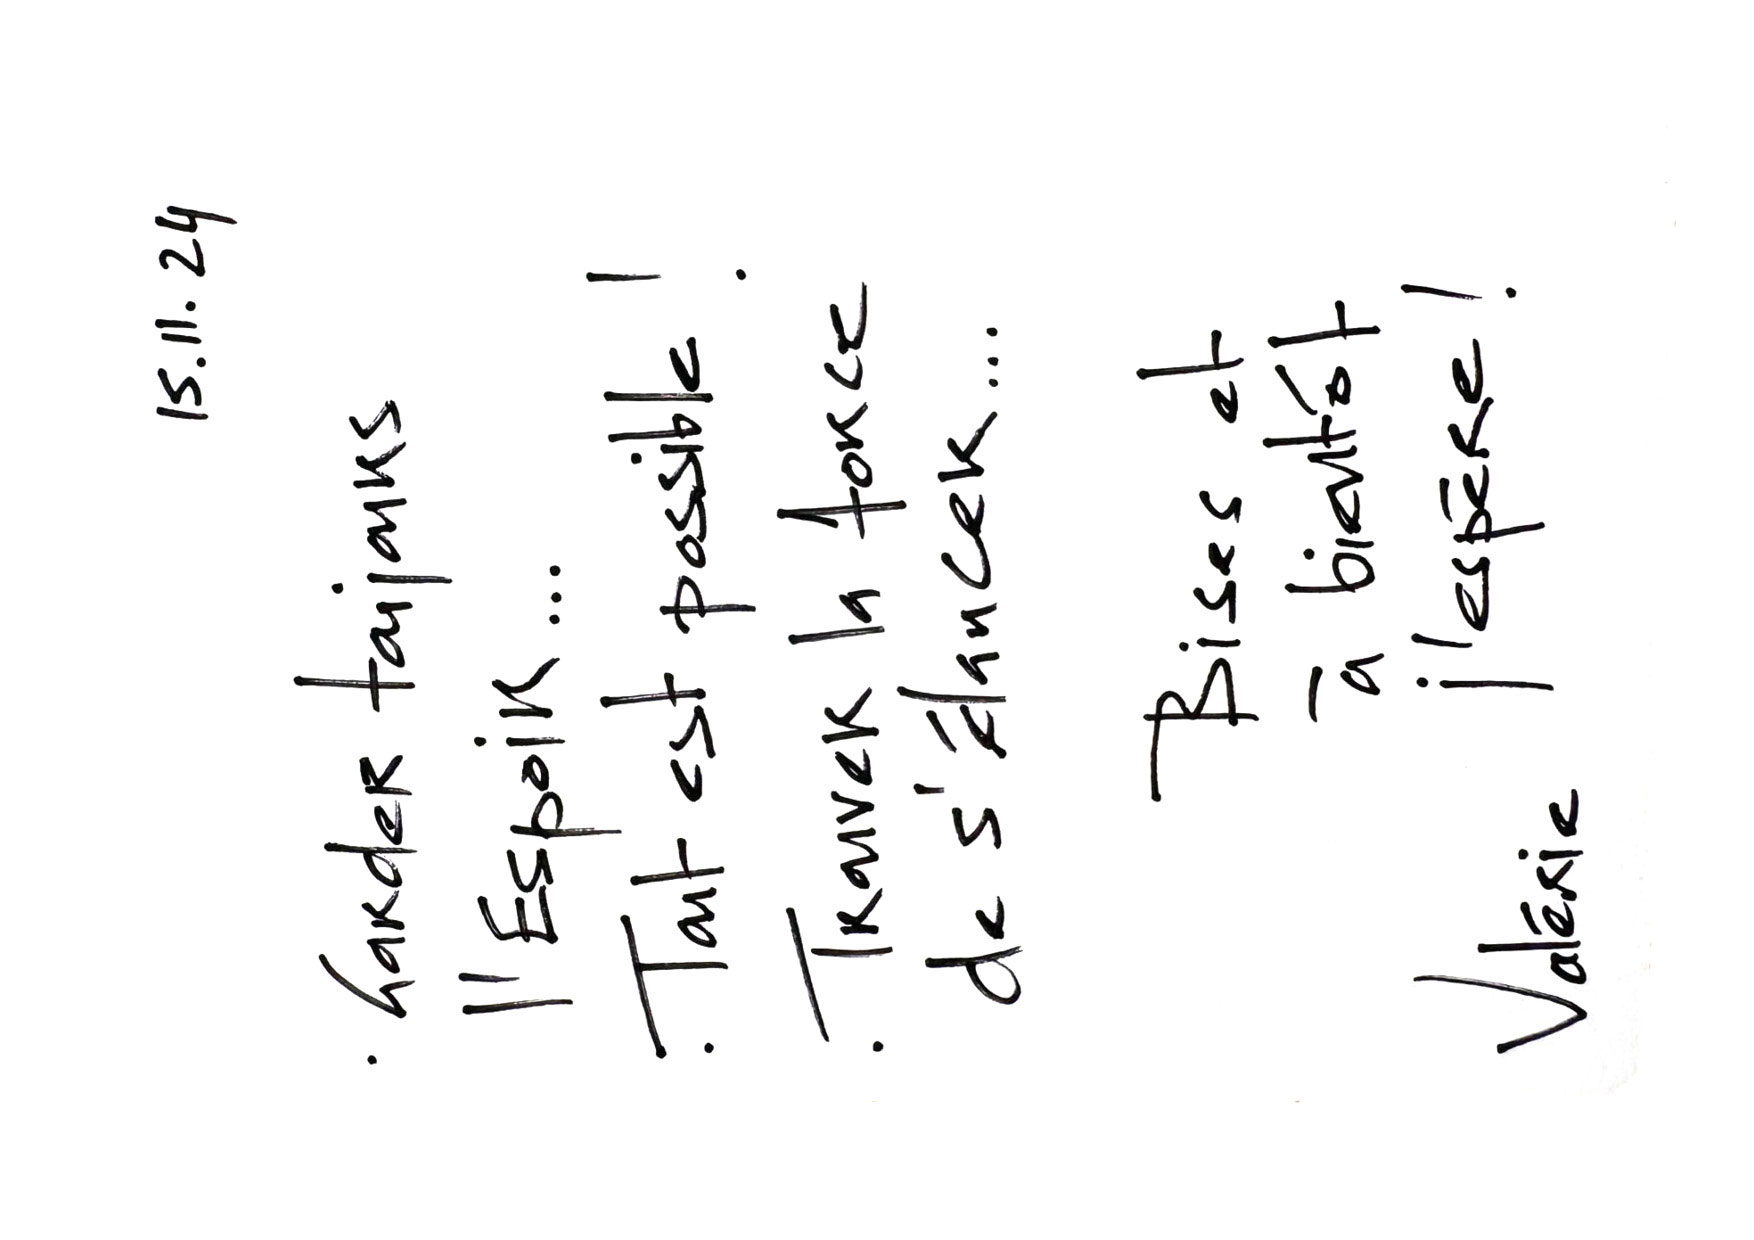 15.11.24
. Garder toujours
l'Espoir ...
. Tout est possible !
. Trouver la force
de s'élancer...
Bises et
à bientôt
j'espère !
Valérie